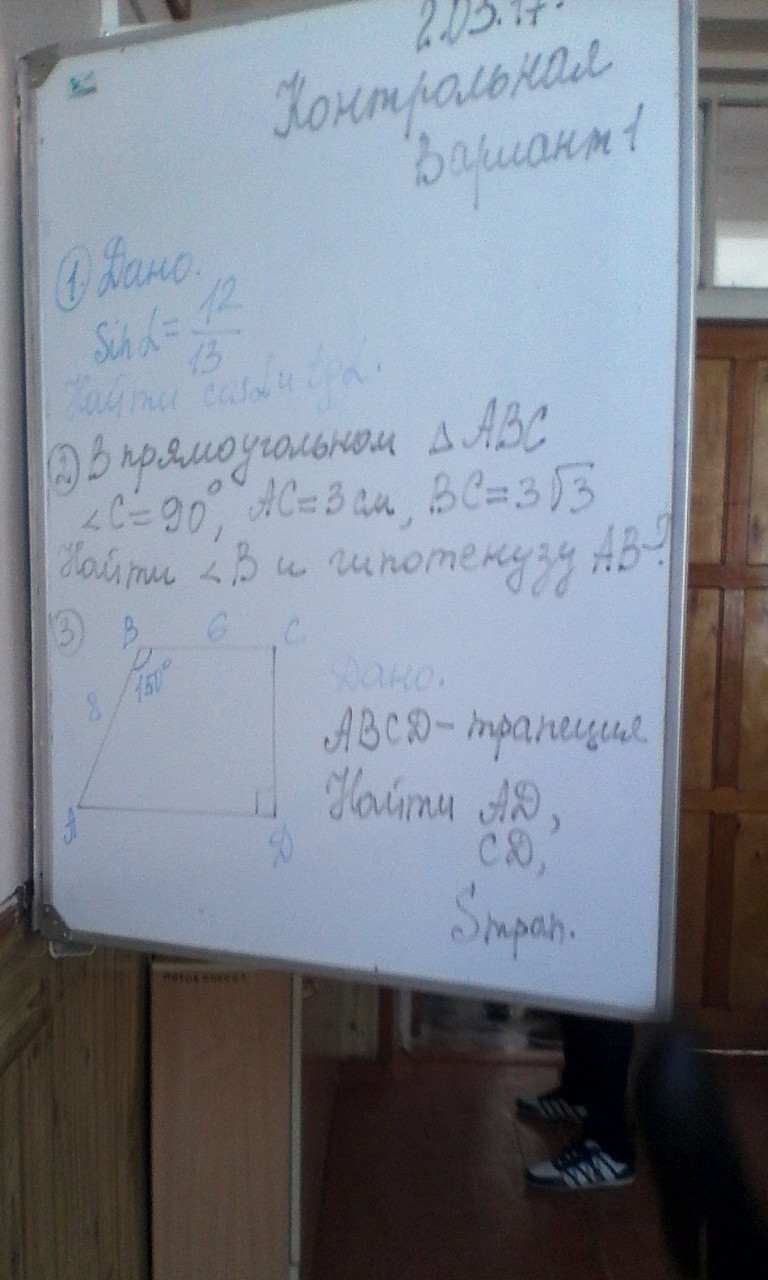 2.03.17.
Контрольная
Вариант 1
1. Дано.
sin α = 12/13
Найти cos α и tg α.
2 В прямоугольном △ ABC
∠C = 90°, AC = 3 см, BC = 3√3
Найти ∠B и гипотенузу AB-?
3
B 6 C
150°
8
A
D
Дано.
ABCD - трапеция
Найти AD,
CD,
Sтрап.